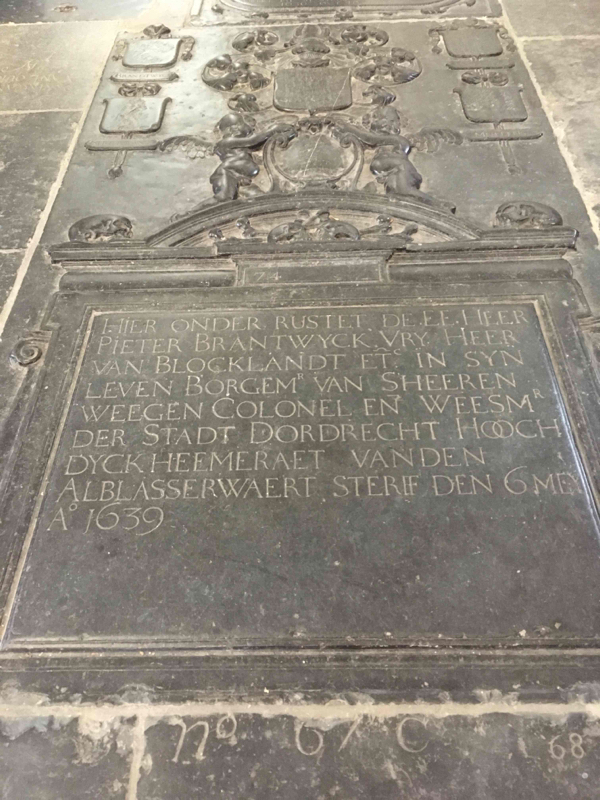 74
HIER ONDER RUSTET DE E.E. HEER
PIETER BRANTWYCK VRY HEER
VAN BLOCKLANDT ETS IN SYN
LEVEN BORGEMR VAN SHEEREN
WEEGEN COLONEL EN WEESMR
DER STADT DORDRECHT HOOCH
DYCKHEEMERAET VANDEN
ALBLASSERWAERT STERIF DEN 6 MEY
Ao 1639
no 67 C
68